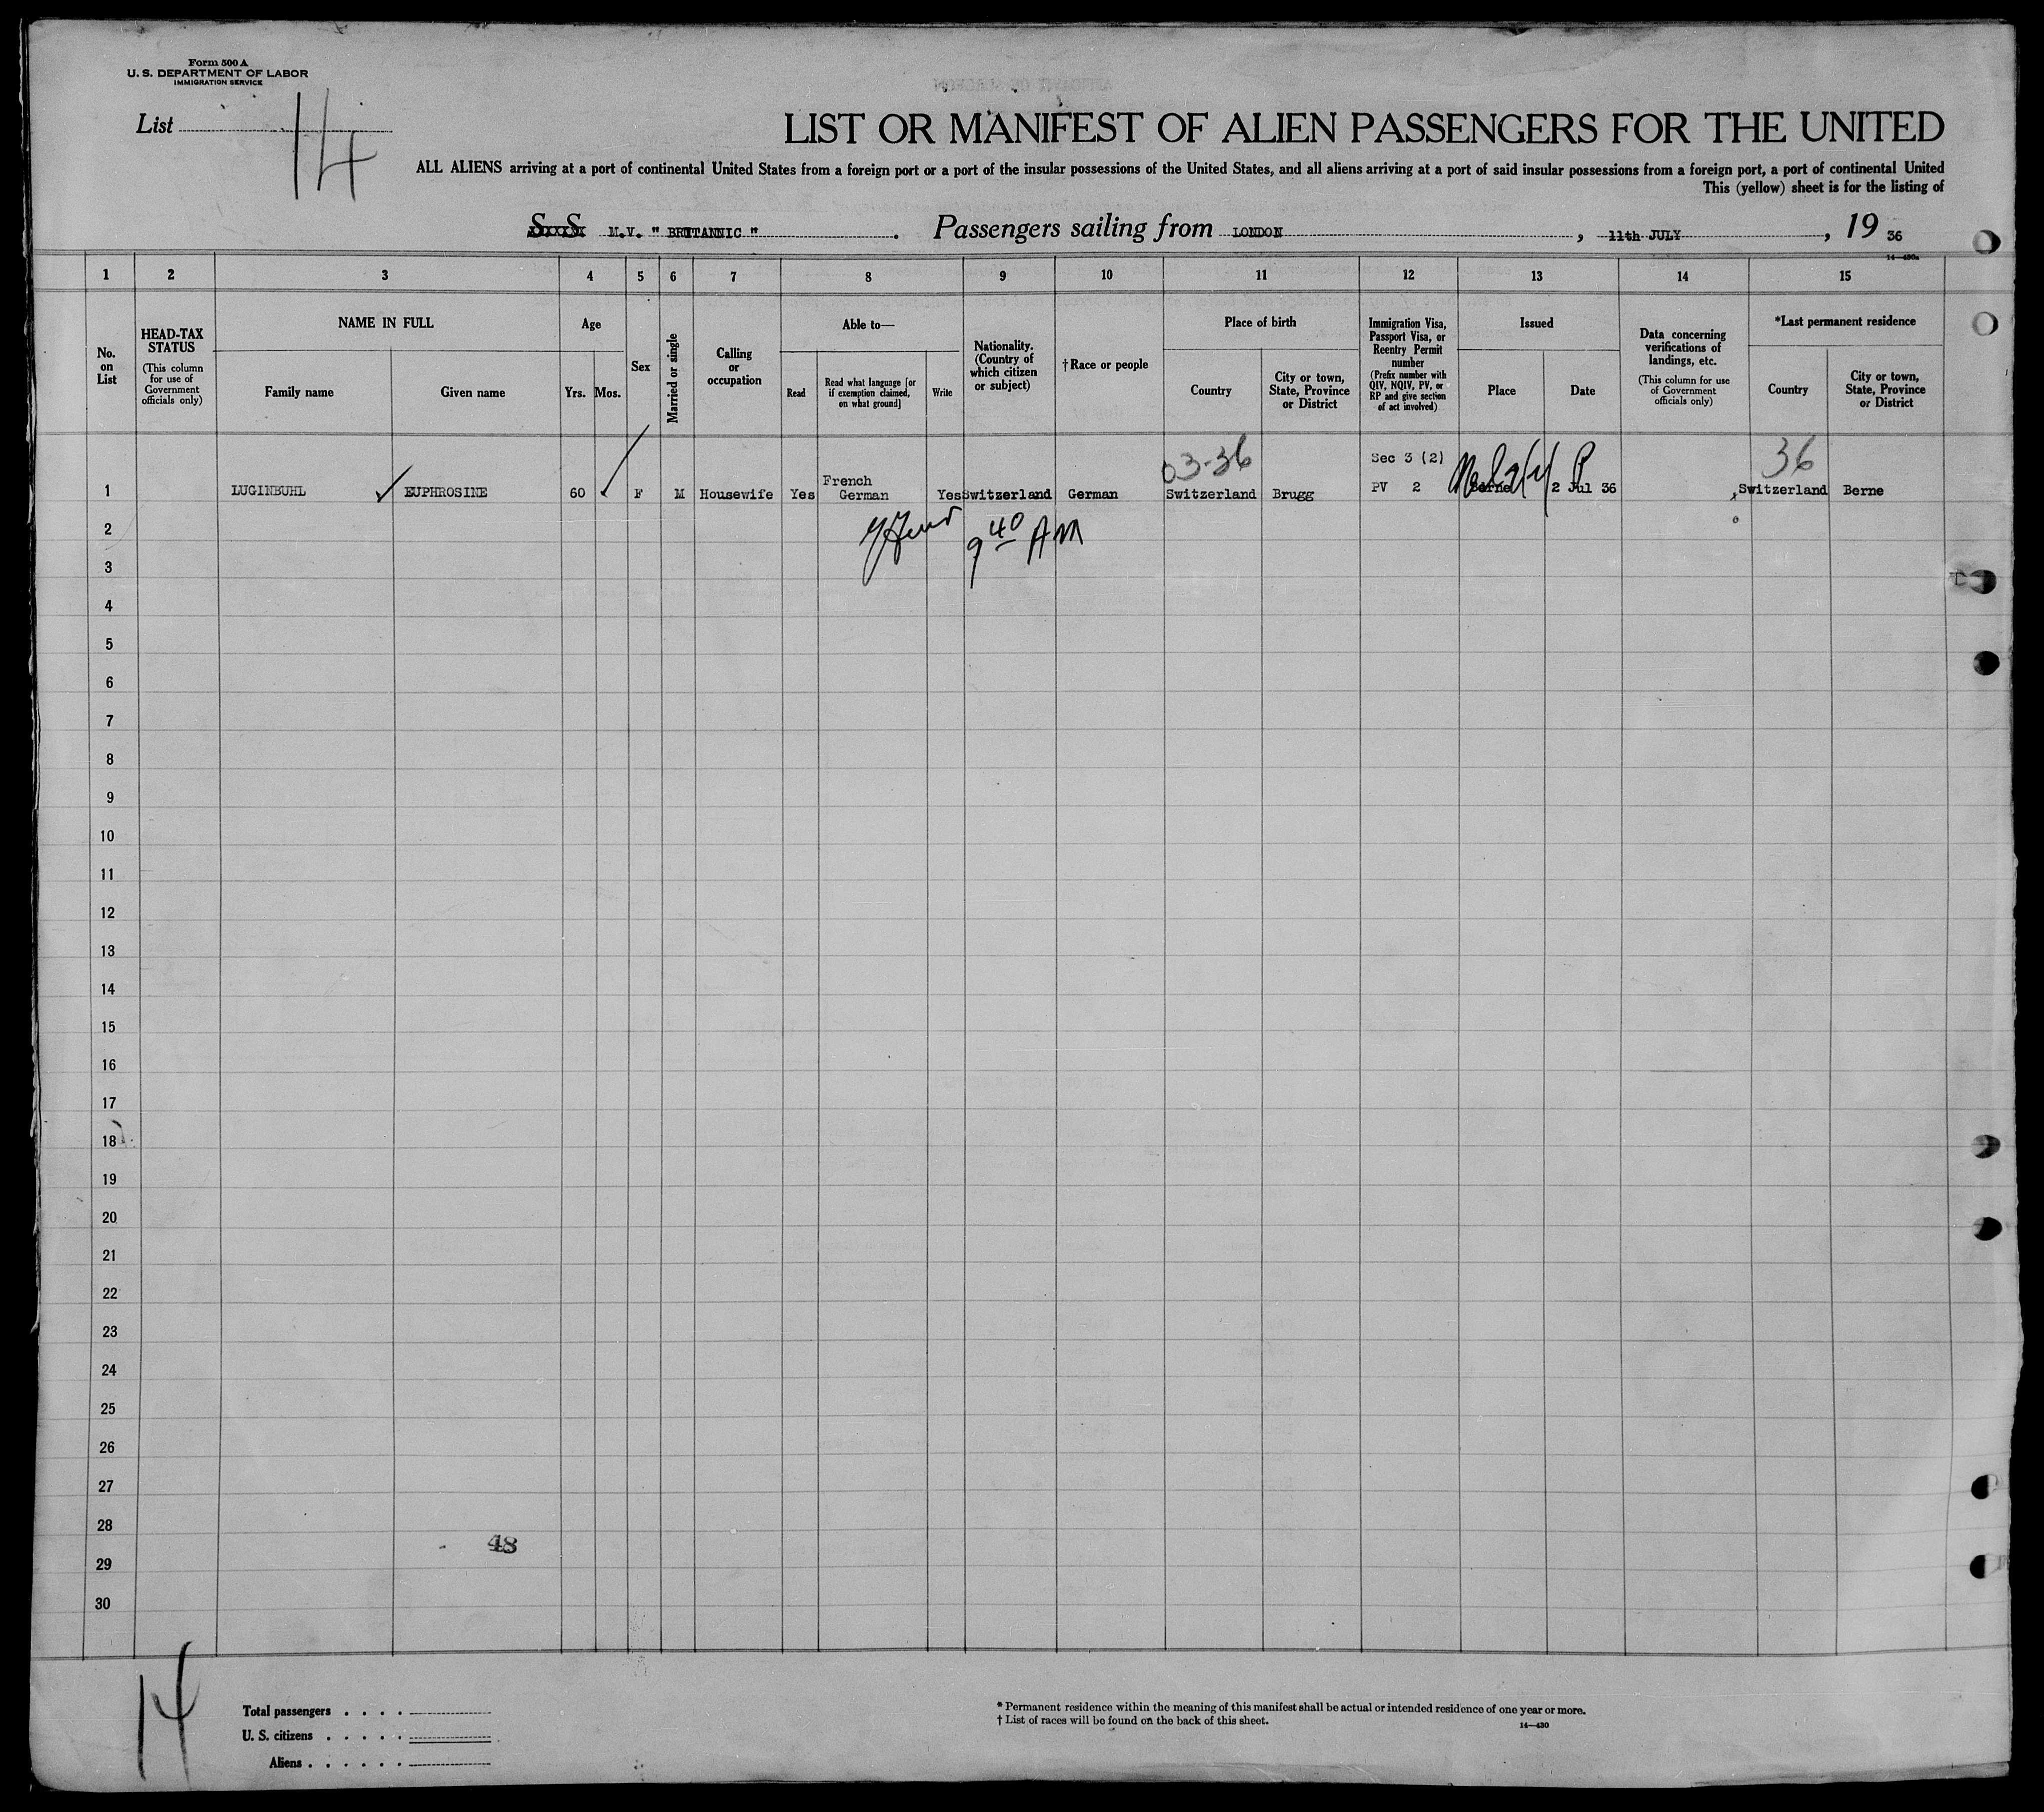 Form 500 A
U. S. DEPARTMENT OF LABOR
IMMIGRATION SERVICE
List 14
LIST OR MANIFEST OF ALIEN PASSENGERS FOR THE UNITED
ALL ALIENS arriving at a port of continental United States from a foreign port or a port of the insular possessions of the United States, and all aliens arriving at a port of said insular possessions from a foreign port, a port of continental United
This (yellow) sheet is for the listing of
S. S. M.V. " BRITANNIC " . Passengers sailing from LONDON , 11th JULY , 19 36
14—430a
1 2 3 4 5 6 7 8 9 10 11 12 13 14 15
No. on List
HEAD-TAX STATUS
(This column for use of Government officials only)
NAME IN FULL
Family name
Given name
Age
Yrs. Mos.
Sex
Married or single
Calling or occupation
Able to—
Read
Read what language [or if exemption claimed, on what ground]
Write
Nationality. (Country of which citizen or subject)
† Race or people
Place of birth
Country
City or town, State, Province or District
Immigration Visa, Passport Visa, or Reentry Permit number
(Prefix number with QIV, NQIV, PV, or RP and give section of act involved)
Issued
Place
Date
Data concerning verifications of landings, etc.
(This column for use of Government officials only)
*Last permanent residence
Country
City or town, State, Province or District
03-36 Sec 3 (2) 36
French
1 LUGINBUHL EUPHROSINE 60 F M Housewife Yes German Yes Switzerland German Switzerland Brugg PV 2 Berne 2 Jul 36 Switzerland Berne
9 40 AM
2
3
4
5
6
7
8
9
10
11
12
13
14
15
16
17
18
19
20
21
22
23
24
25
26
27
28
48
29
30
14
Total passengers . . . .
U. S. citizens . . . . .
Aliens . . . . . .
* Permanent residence within the meaning of this manifest shall be actual or intended residence of one year or more.
† List of races will be found on the back of this sheet.
14—430